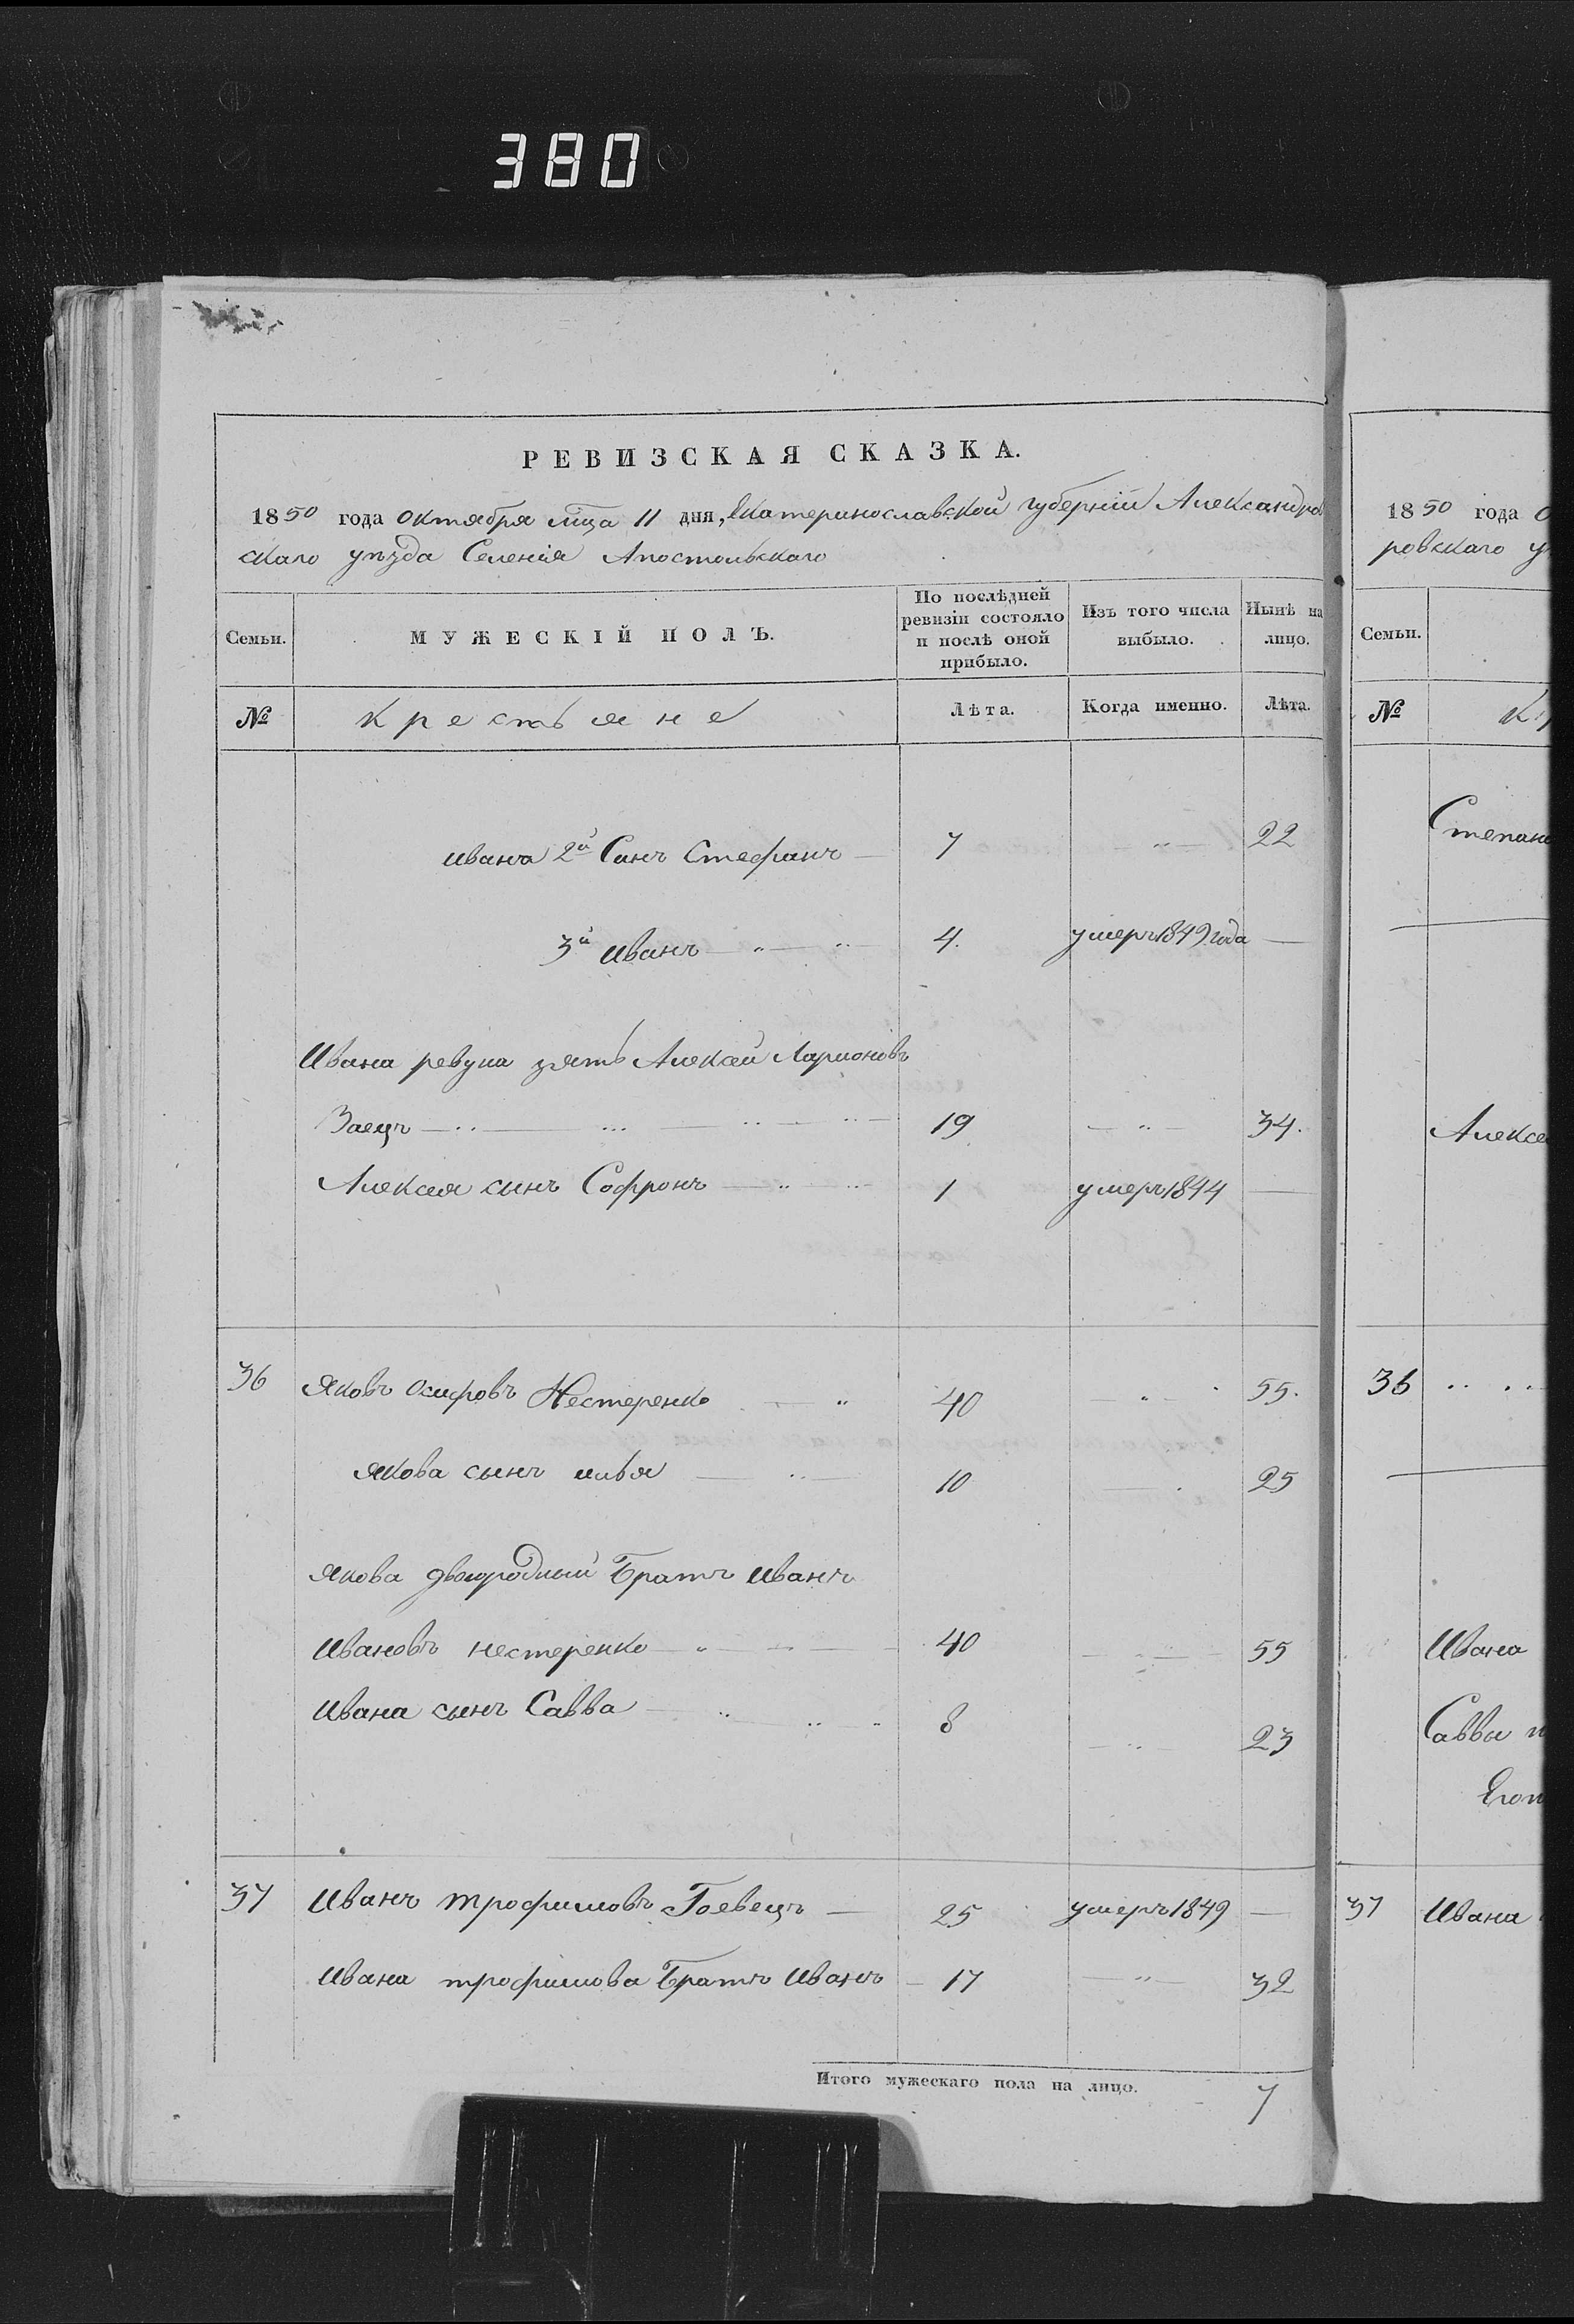 380
РЕВИЗСКАЯ СКАЗКА.
1850 года Октября мца 11 дня, Екатеринославской губернии Александров
скаго уѣзда Селенія Апостольскаго
Семьи.
МУЖЕСКІЙ ПОЛЪ.
По послѣдней ревизіи состояло и послѣ оной прибыло.
Изъ того числа выбыло.
Нынѣ на лицо.
№ крестьяне Лѣта. Когда именно. Лѣта.
Ивана 2й Сынъ Стефанъ — 7 — " — 22
3й Иванъ — " — " — 4. умеръ 1849 года —
Ивана ревуна зять Алексей Ларионовъ
Заецъ — 19 — " — 34.
Алексея сынъ Софронъ — " — 1 умеръ 1844 —
36 Яковъ Осиповъ Нестеренко — " 40 — " — 55.
Якова сынъ илья — " — 10 — 25
Якова двоюродный Братъ Иванъ
Ивановъ нестеренко — " — 40 — " — 55
Ивана сынъ Савва — " — 8 — " — 23
37 Иванъ трофимовъ Гоевецъ — 25 умеръ 1849 —
Ивана трофимова Братъ Иванъ — 17 — " — 32
Итого мужескаго пола на лицо. 7
1850 года О
ровскаго у
Семьи.
№ К
Степан
Алексе
36
Ивана
Саввы
37 Ивана